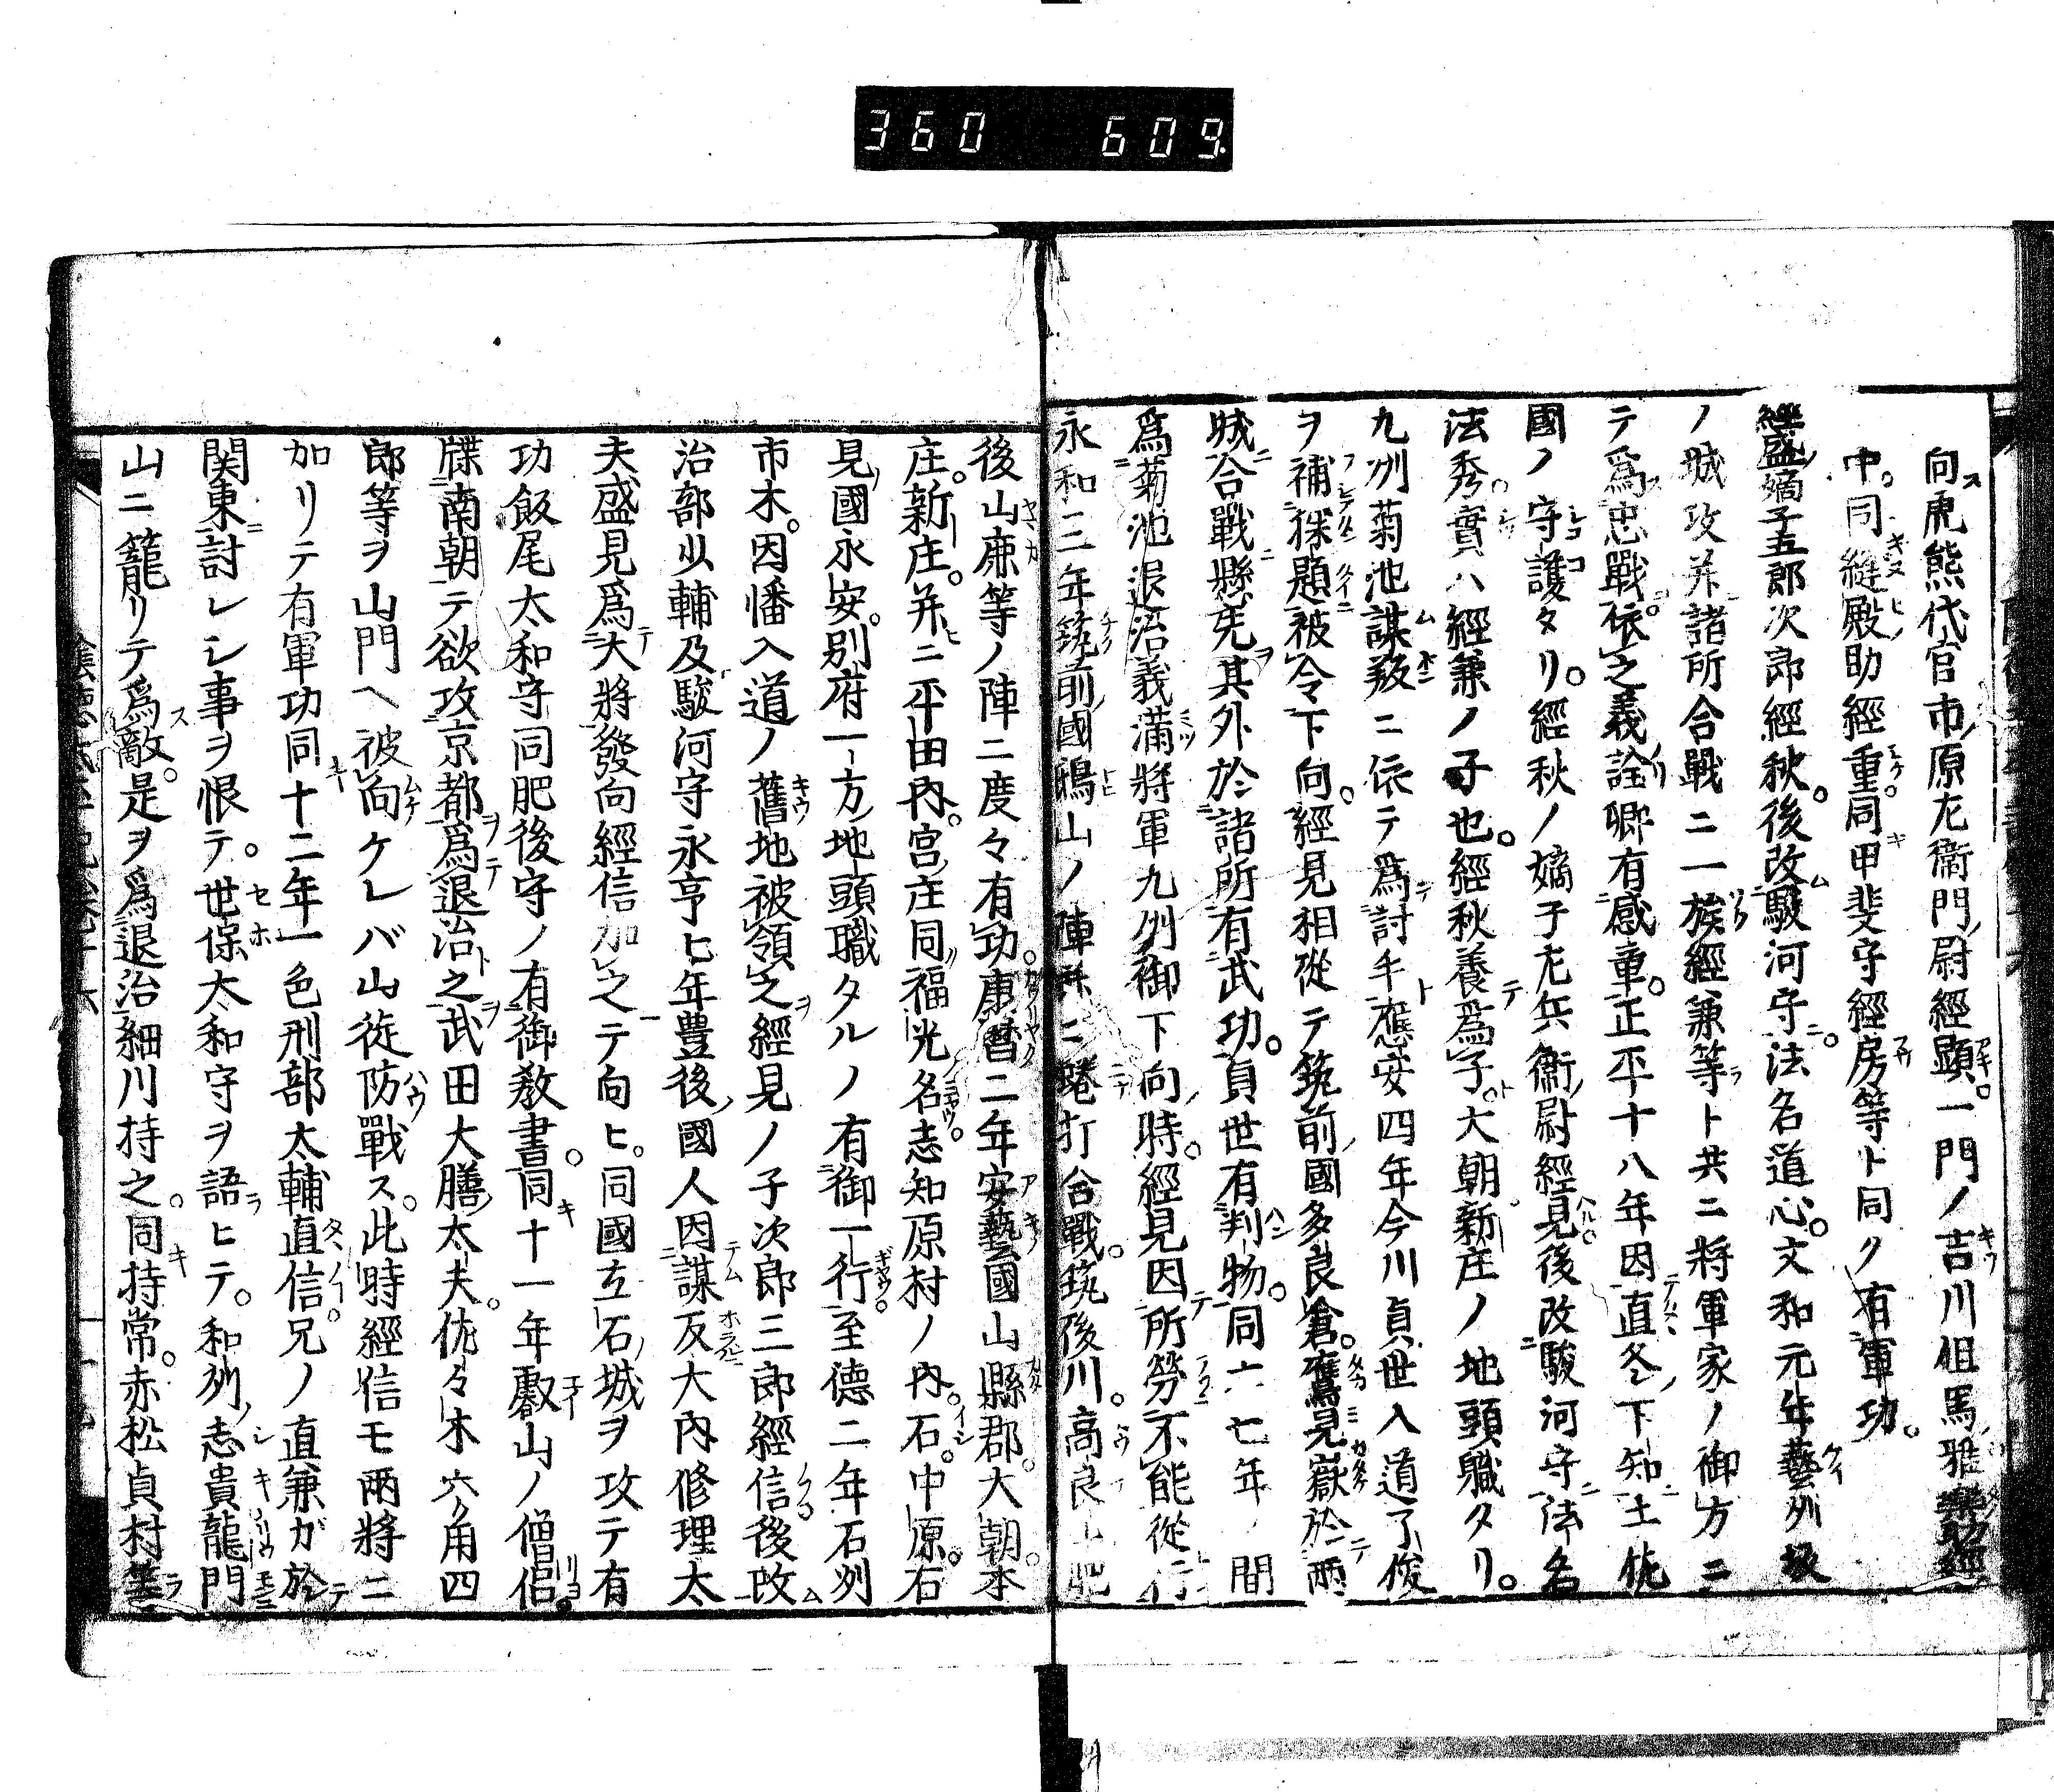 360 609
向虎熊代官市原尤衞門ノ尉經顯一門ノ吉川但馬雅樂助經
中同縫殿助經重同甲斐守經房等ト同ク有軍功
經盛嫡子五郎次郎經秋後改駿河守法名道心文和元年藝州坂
ノ城攻并諸所合戰ニ一族經兼等ト共ニ將軍家ノ御方ニ
テ爲忠戰依之義詮卿有感章正平十八年因直冬下知土佐
國ノ守護タリ經秋ノ嫡子左兵衞尉經見後改駿河守法名
法秀實ハ經兼ノ子也經秋養爲子大朝新庄ノ地頭職タリ
九州菊池謀叛ニ依テ爲討手應安四年今川貞世入道了俊
ヲ補探題被令下向經見相從テ筑前國多良倉鷹見嶽於兩
城合戰懸先其外於諸所有武功貞世有判物同六七年ノ間
爲菊池退治義滿將軍九州御下向時經見因所勞不能從行
永和三年筑前國鴟山ノ陣并ニ蜷打合戰筑後川高良山肥
後山鹿等ノ陣ニ度々有功康暦二年安藝國山縣郡大朝本
庄新庄并ニ平田內宮庄同福光名志知原村ノ內石中原石
見國永安別府一方地頭職タルノ有御一行至德二年石州
市木因幡入道ノ舊地被領之經見ノ子次郎三郎經信後改
治部少輔及駿河守永亨七年豊後國人因謀反大內修理太
夫盛見爲大將發向經信加之テ向ヒ同國立石城ヲ攻テ有
功飯尾太和守同肥後守ノ有御教書同十一年叡山ノ僧侶
牒南朝テ欲攻京都爲退治之武田大膳太夫佐々木六角四
郎等ヲ山門ヘ被向ケレバ山徒防戰ス此時經信モ兩將ニ
加リテ有軍功同十二年一色刑部太輔直信兄ノ直兼ガ於
関東討レシ事ヲ恨テ世保太和守ヲ語ヒテ和州志貴龍門
山ニ籠リテ爲敵是ヲ爲退治細川持之同持常赤松貞村等